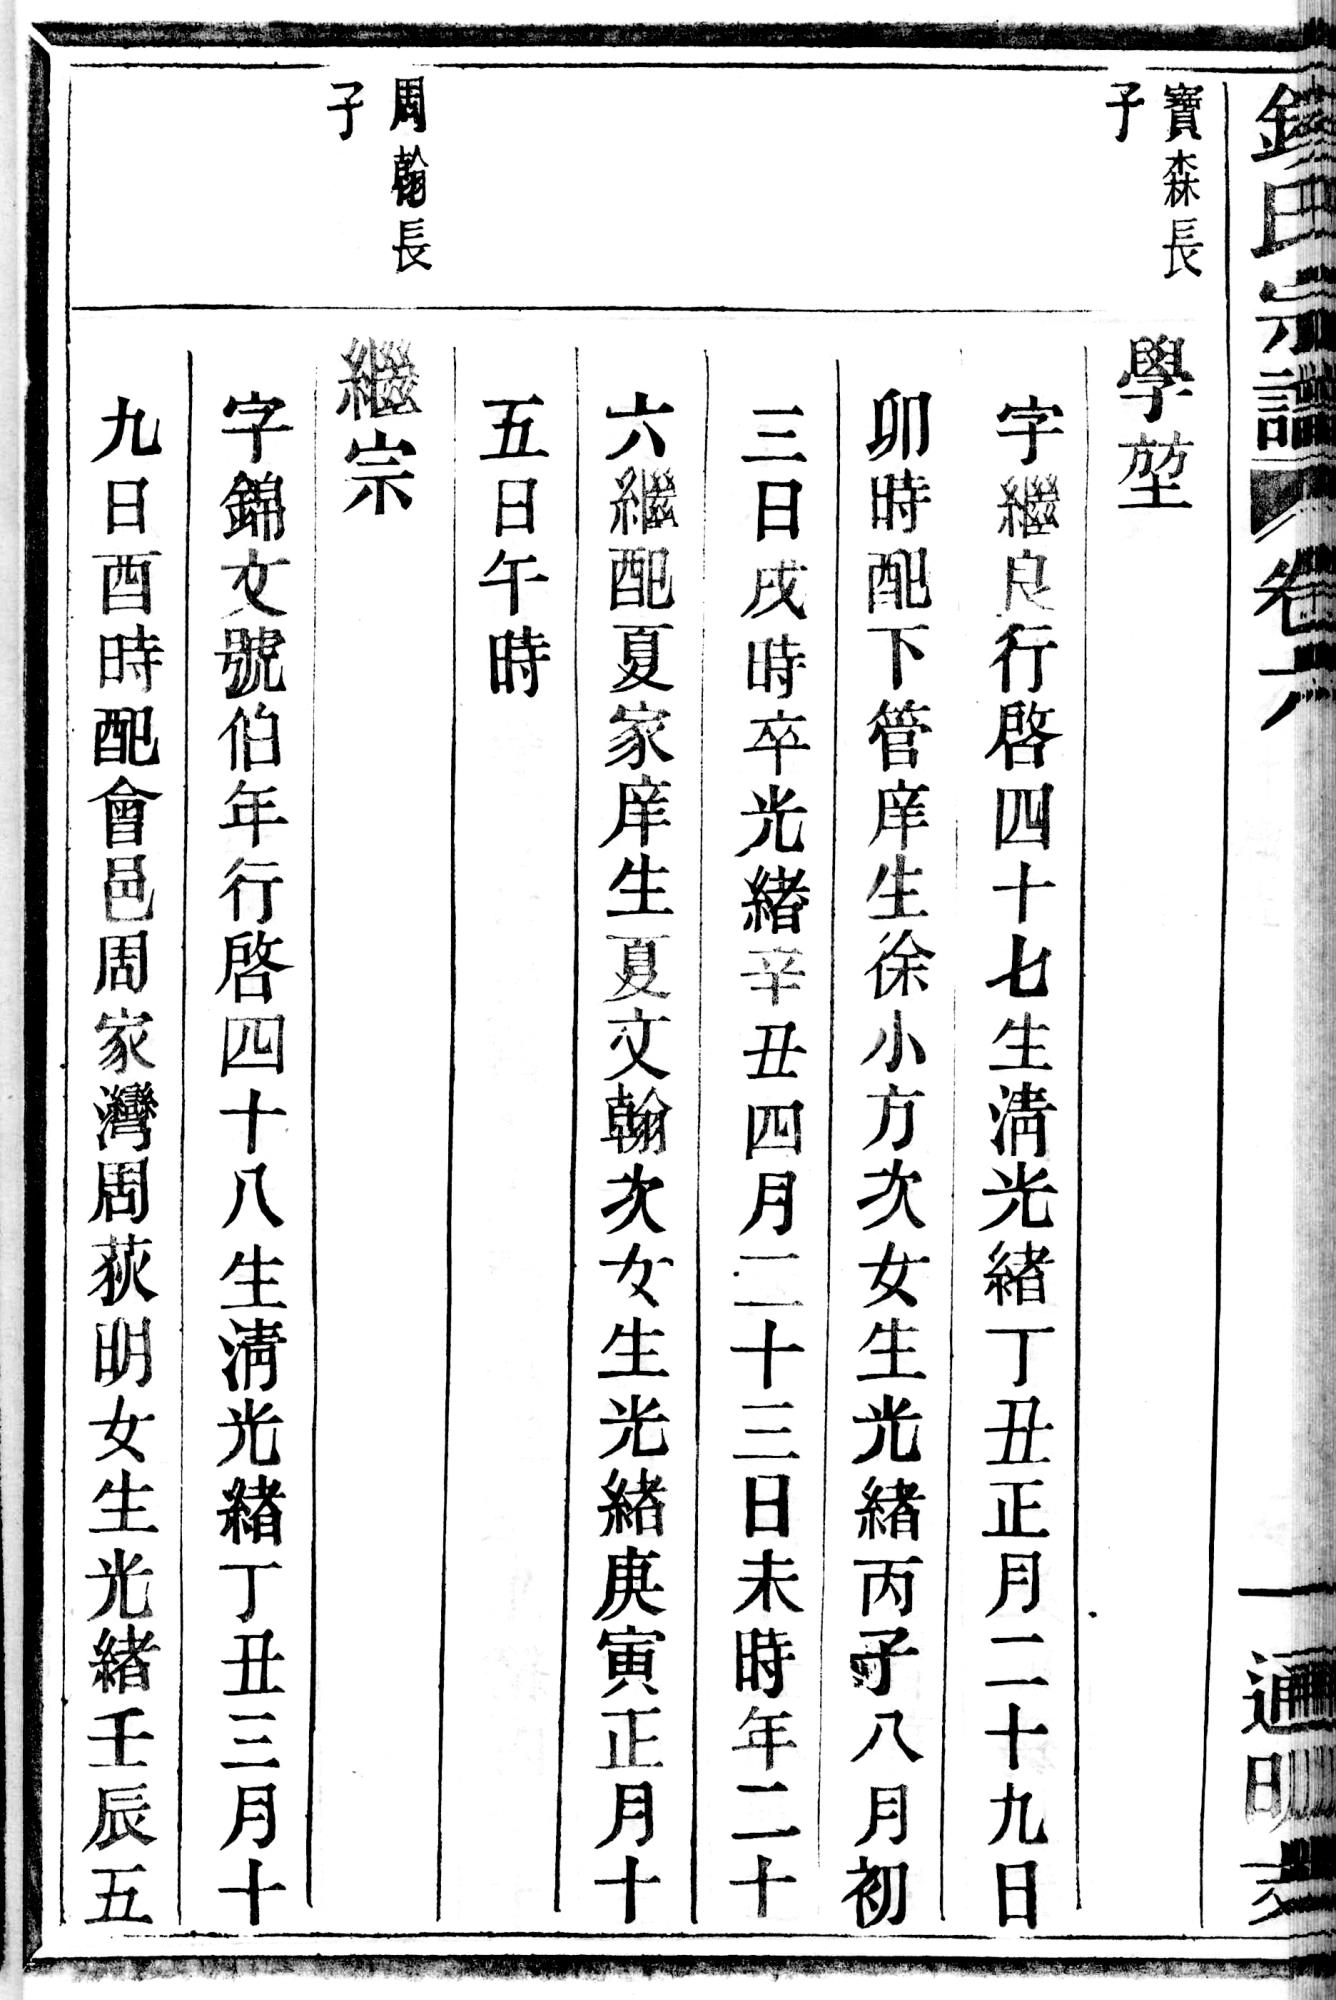 氏宗譜 卷六 一 通明支
寶森長
子
學堃
字繼良行啓四十七生淸光緖丁丑正月二十九日
卯時配下管庠生徐小方次女生光緖丙子八月初
三日戌時卒光緖辛丑四月二十三日未時年二十
六繼配夏家庠生夏文翰次女生光緖庚寅正月十
五日午時
周翰長
子
繼宗
字錦文號伯年行啓四十八生淸光緖丁丑三月十
九日酉時配會邑周家灣周荻明女生光緖壬辰五